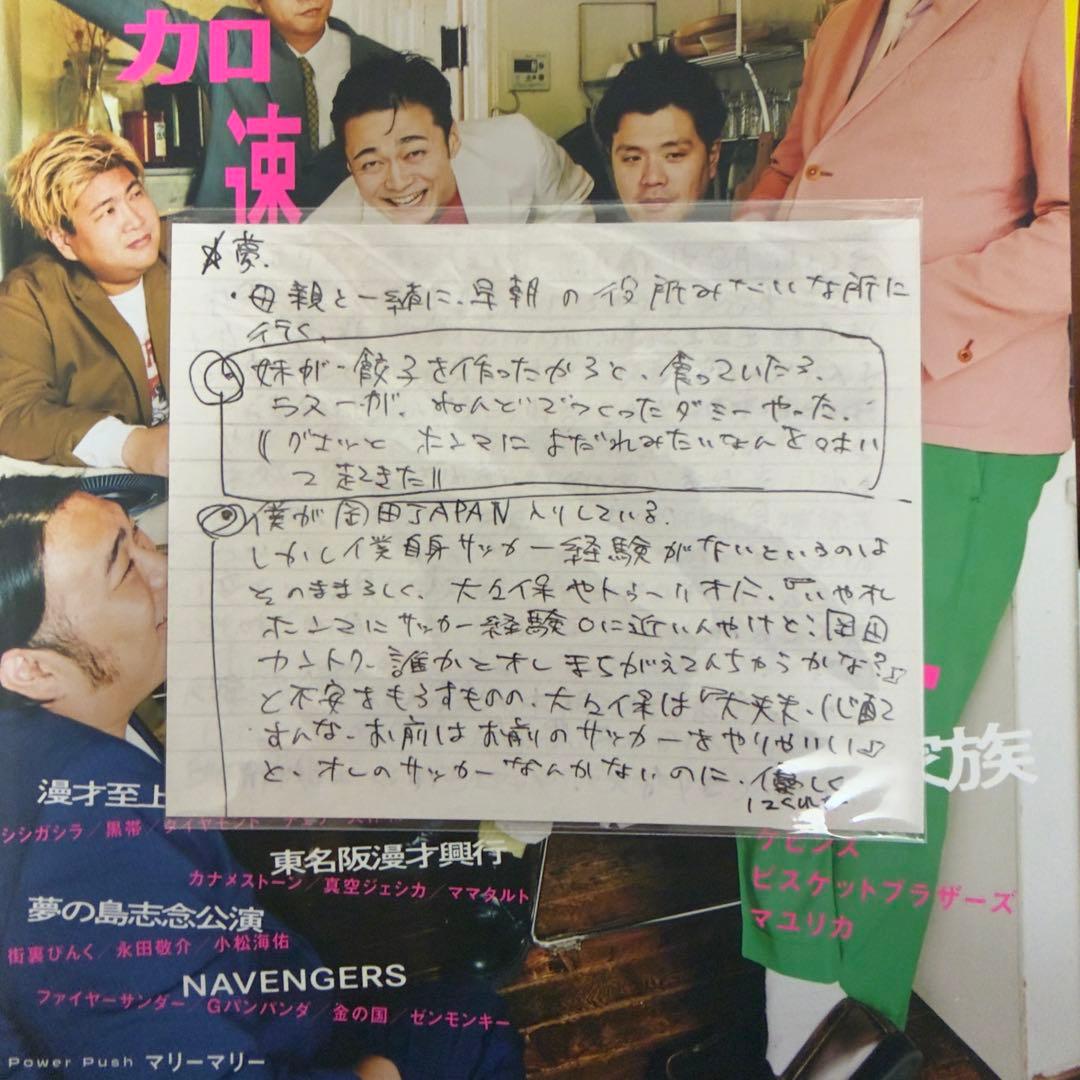 加速
☆夢.
・母親と一緒に、早朝の役所みたいな所に
行く、
妹が、餃子を作ったからと、食っていたら、
ラスーが、ねんどでつくったダミーやった.
((グエッと ホンマに よだれみたいなんを はい
て起きた))
僕が岡田JAPAN入りしている.
しかし僕自身サッカー経験がないというのは
そのままらしく、大久保やトゥーリオに、『いやオレ
ホンマにサッカー経験0に近いんやけど:岡田
カントク、誰かとオレまちがえてんちゃうかな?』
と不安をもらすものの、大久保は『大丈夫、心配
すんな、お前はお前のサッカーをやりゃいい』
と、オレのサッカーなんかないのに、優しく
家族
漫才至上
シシガシラ/黒帯/ダイヤモンド
東名阪漫才興行
カナメストーン/真空ジェシカ/ママタルト
ケビンス
ビスケットブラザーズ
マユリカ
夢の島志念公演
街裏ぴんく/永田敬介/小松海佑
NAVENGERS
ファイヤーサンダー/Gパンパンダ/金の国/ゼンモンキー
Power Push マリーマリー